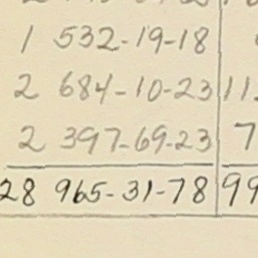 1 532-19-18
2 684-10-23 11.
2 397-69-23 7
28 965-31-78 99